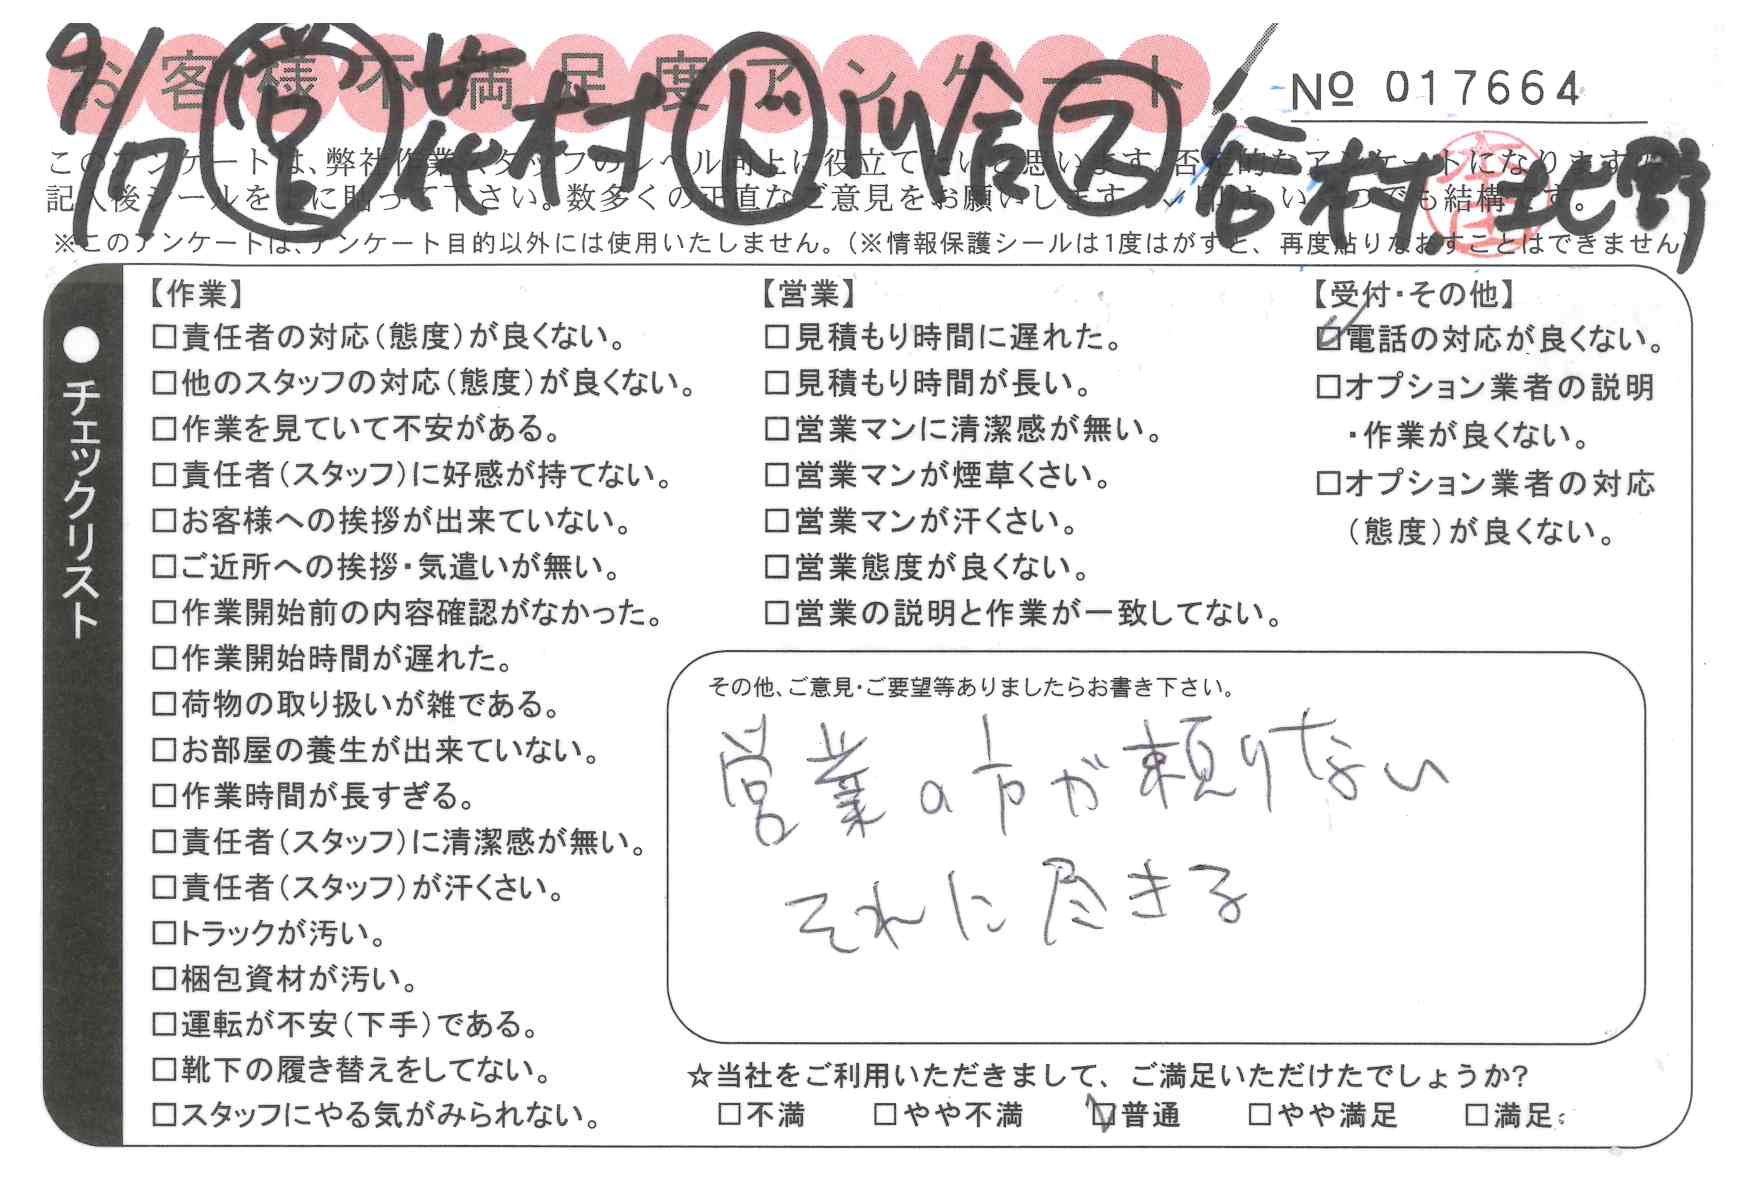 お客様不満足度アンケート
№ 017664
9/17 営 花村 ド 川合 ス 谷村 北野
このアンケートは、弊社作業スタッフのレベル向上に役立てたいと思います。否定的なアンケートになりますが
記入後シールを上に貼って下さい。数多くの正直なご意見をお願いします。✓印は、いくつでも結構です。
※このアンケートは、アンケート目的以外には使用いたしません。(※情報保護シールは1度はがすと、再度貼りなおすことはできません)
●チェックリスト
【作業】
□責任者の対応(態度)が良くない。
□他のスタッフの対応(態度)が良くない。
□作業を見ていて不安がある。
□責任者(スタッフ)に好感が持てない。
□お客様への挨拶が出来ていない。
□ご近所への挨拶・気遣いが無い。
□作業開始前の内容確認がなかった。
□作業開始時間が遅れた。
□荷物の取り扱いが雑である。
□お部屋の養生が出来ていない。
□作業時間が長すぎる。
□責任者(スタッフ)に清潔感が無い。
□責任者(スタッフ)が汗くさい。
□トラックが汚い。
□梱包資材が汚い。
□運転が不安(下手)である。
□靴下の履き替えをしてない。
□スタッフにやる気がみられない。
【営業】
□見積もり時間に遅れた。
□見積もり時間が長い。
□営業マンに清潔感が無い。
□営業マンが煙草くさい。
□営業マンが汗くさい。
□営業態度が良くない。
□営業の説明と作業が一致してない。
【受付・その他】
☑電話の対応が良くない。
□オプション業者の説明
・作業が良くない。
□オプション業者の対応
(態度)が良くない。
その他、ご意見・ご要望等ありましたらお書き下さい。
営業の方が頼りない
それに尽きる
☆当社をご利用いただきまして、ご満足いただけたでしょうか?
□不満 □やや不満 ☑普通 □やや満足 □満足